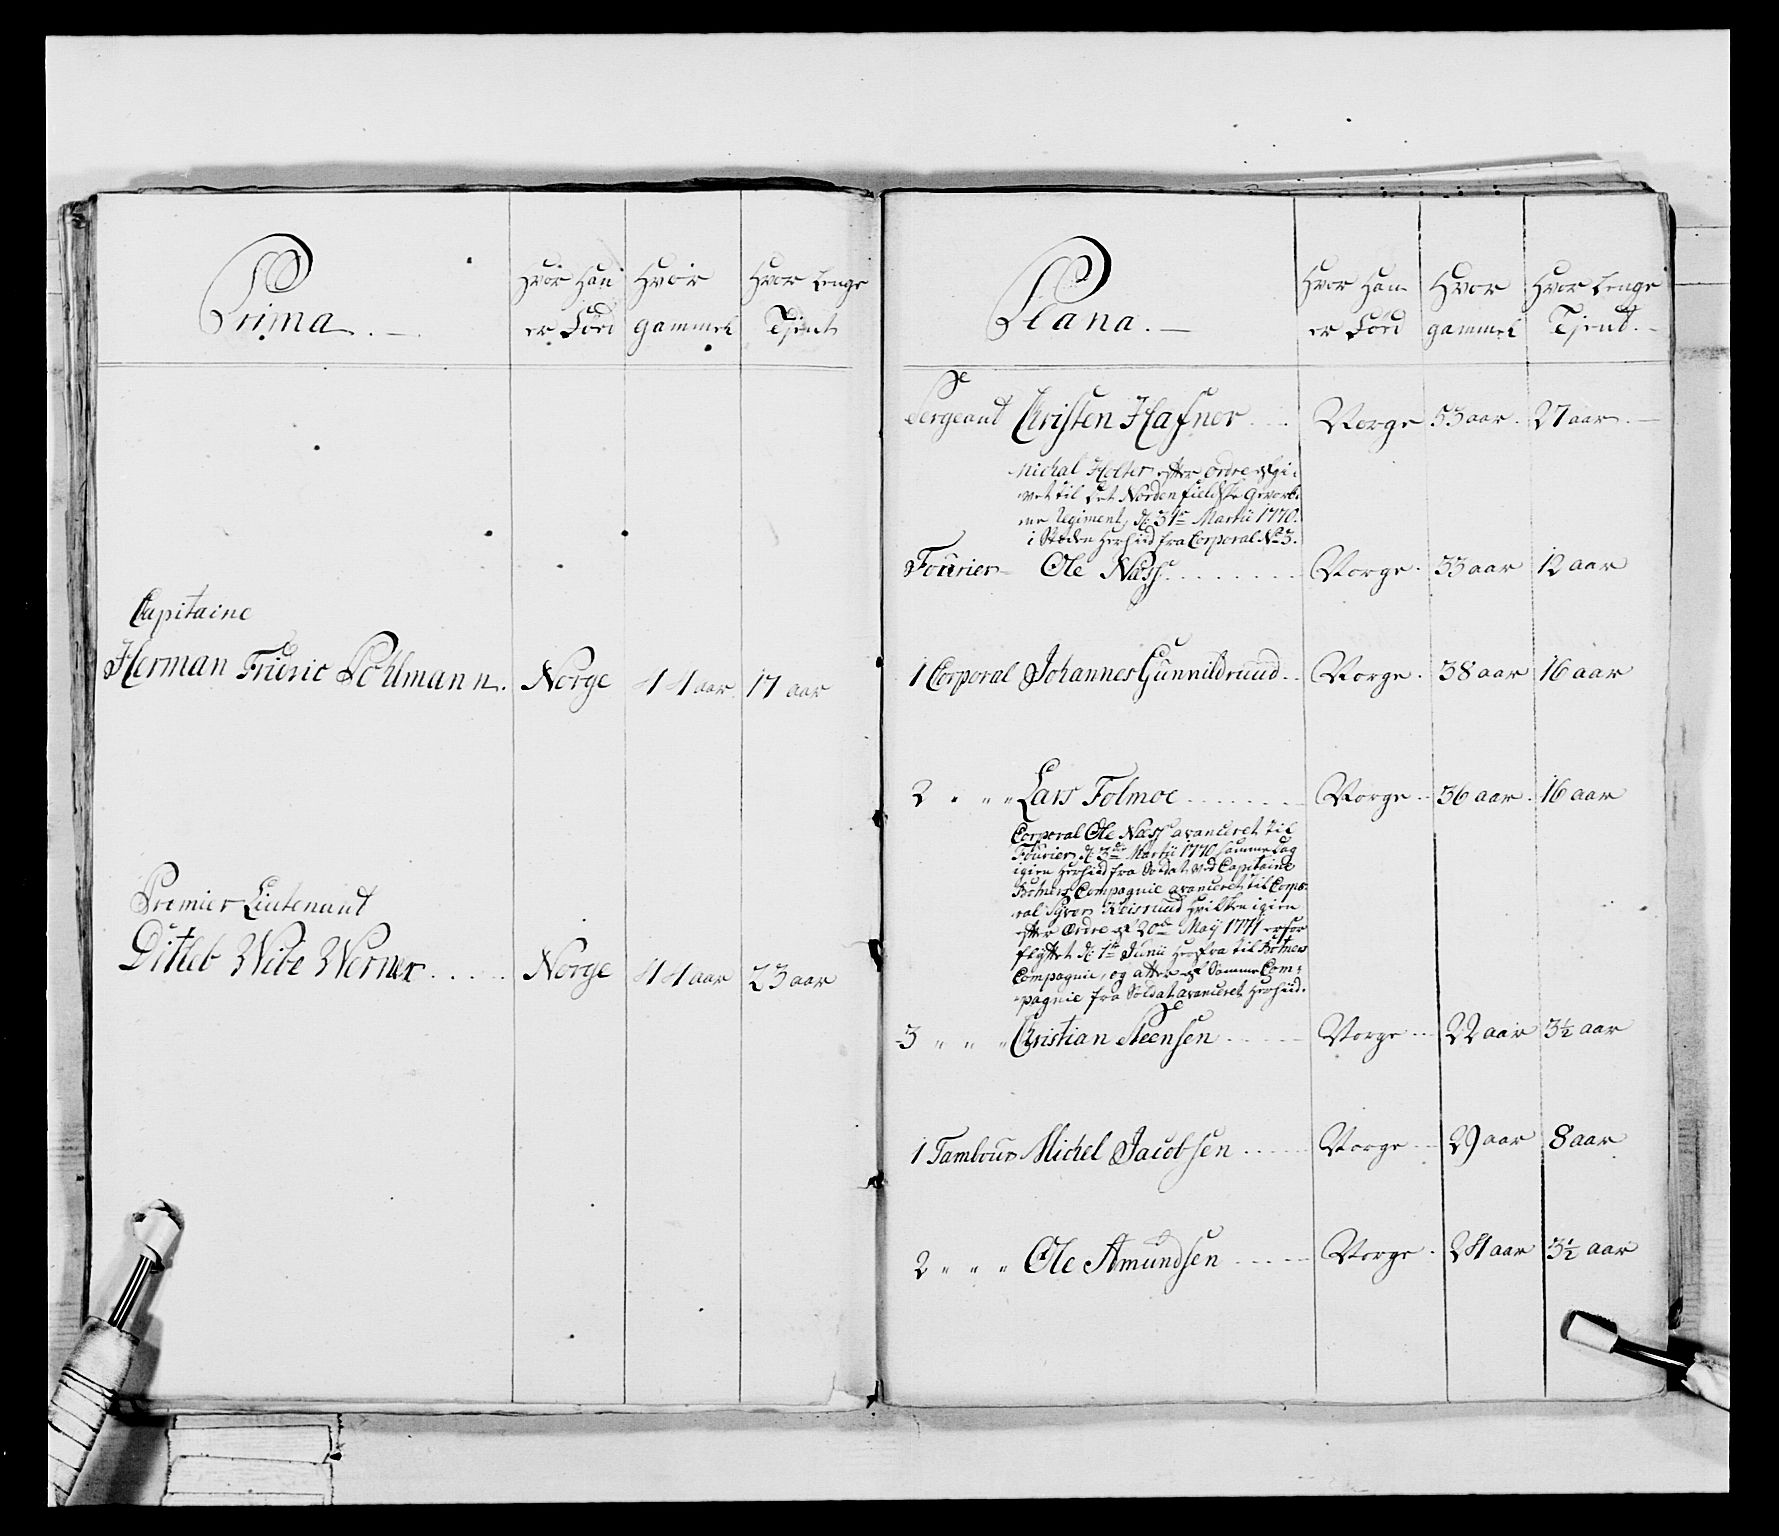 Prima.
Hvor Han
er Föed
Hvor
gammel
Hvor Lenge
Tjent
Capitaine
Herman Frideric Pöhlmann. Norge 44 aar. 17 aar
Premier Lieutenant
Ditleb Wibe Werner..... Norge 44 aar 23 aar
Plana.
Hvor Han
er Föed
Hvor
gammel
Hvor Lenge
Tjent.
Sergeant Christen Hafner... Norge 53 aar. 27 aar.
Michal Holter efter ordre afgi-
vet til det Nordenfieldske Gevorbe
ne Regiment, d: 31te Martii 1770.
i Steden Herhid fra Corporal No 3.
Fourier Ole Næss........ Norge. 33 aar 12 aar
1 Corporal Johannes Gunnildrund.. Norge. 38 aar 16 aar
2 " " " Lars Tolmoe........ Norge.. 36 aar. 16 aar
Corporal Ole Næss avanceret til
Fourier d: 3die Martii 1770 samme Dag
igien Herhid fra Soldat ved Capitaine
Botners Compagnie avanceret til Corpo-
ral Syver Hvilken igien
efter Ordre af 20de Maij 1771 er for
flyttet d: 1te Junii Herfra til Botners
Compagnie, og atter af Samme Com-
pagnie fra Soldat avanceret Herhid.
3 " " " Christian Steensen...... Norge... 22 aar 3½ aar
1 Tambour Michel Jacobsen..... Norge... 29 aar 8 aar
2 " " " Ole Amundsen..... Norge. 24 aar 3½ aar